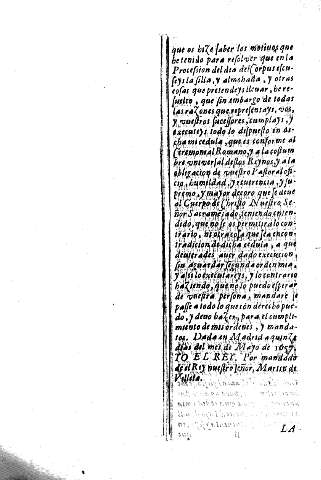 que os hize saber los motivos que
he tenido para resolver que en la
Procession del dia del Corpus escu-
seys la silla, y almohada, y otras
cosas que pretendeys llevar, he re-
suelto, que sin embargo de todas
las razones que representays, vos,
y vuestros sucessores, cumplays, y
executeys todo lo dispuesto en di-
cha mi cedula, que es conforme al
Ceremonial Romano, y a la costum
bre universal destos Reynos, y a la
obligacion de vuestro Pastoral ofi-
cio, humildad, y reverencia, y su-
premo, y mayor decoro que se deve
al Cuerpo de Christo Nuestro Se-
ñor Sacramentado, teniendo enten-
dido, que no se os permitirá lo con-
trario, ni otra cosa que sea en con-
tradicion de dicha cedula, a que
deviérades aver dado execucion,
sin aguardar segunda orden mia,
y assi lo executareys, y lo contrario
haziendo, que no lo puedo esperar
de vuestra persona, mandaré se
passe a todo lo que con derecho pue-
do, y devo hazer, para el cumpli-
miento de mis ordenes, y manda-
tos. Dada en Madrid a quinze
dias del mes de Mayo de
YO EL REY. Por mandado
de el Rey nuestro señor, Martin de
Villela.
LA